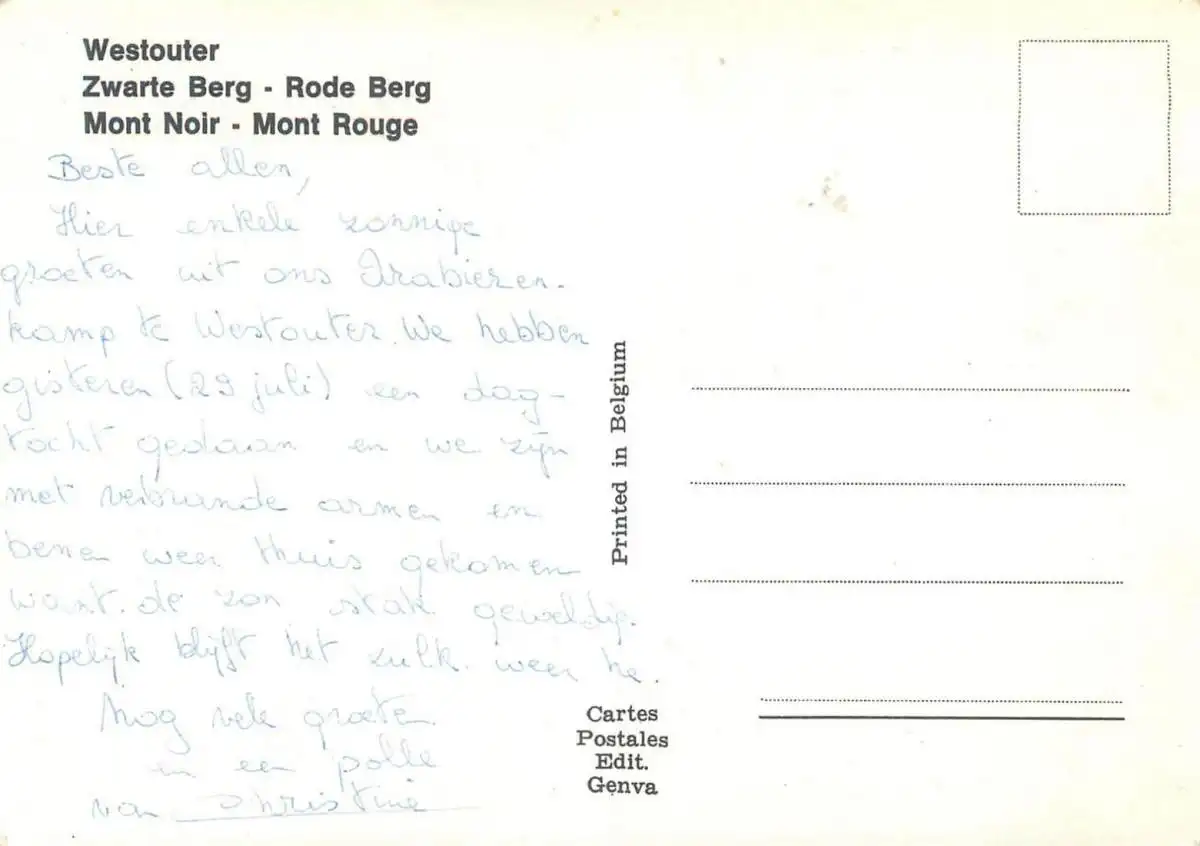 Westouter
Zwarte Berg - Rode Berg
Mont Noir - Mont Rouge
Beste allen,
Hier enkele zonnige
groeten uit ons Arabieren-
kamp te Westouter. We hebben
gisteren (29 juli) een dag-
tocht gedaan en we zijn
met verbrande armen en
benen weer thuis gekomen
want de zon stak geweldig.
Hopelijk blijft het zulk weer he.
Nog vele groeten
en een polle
van Christine
Printed in Belgium
Cartes
Postales
Edit.
Genva